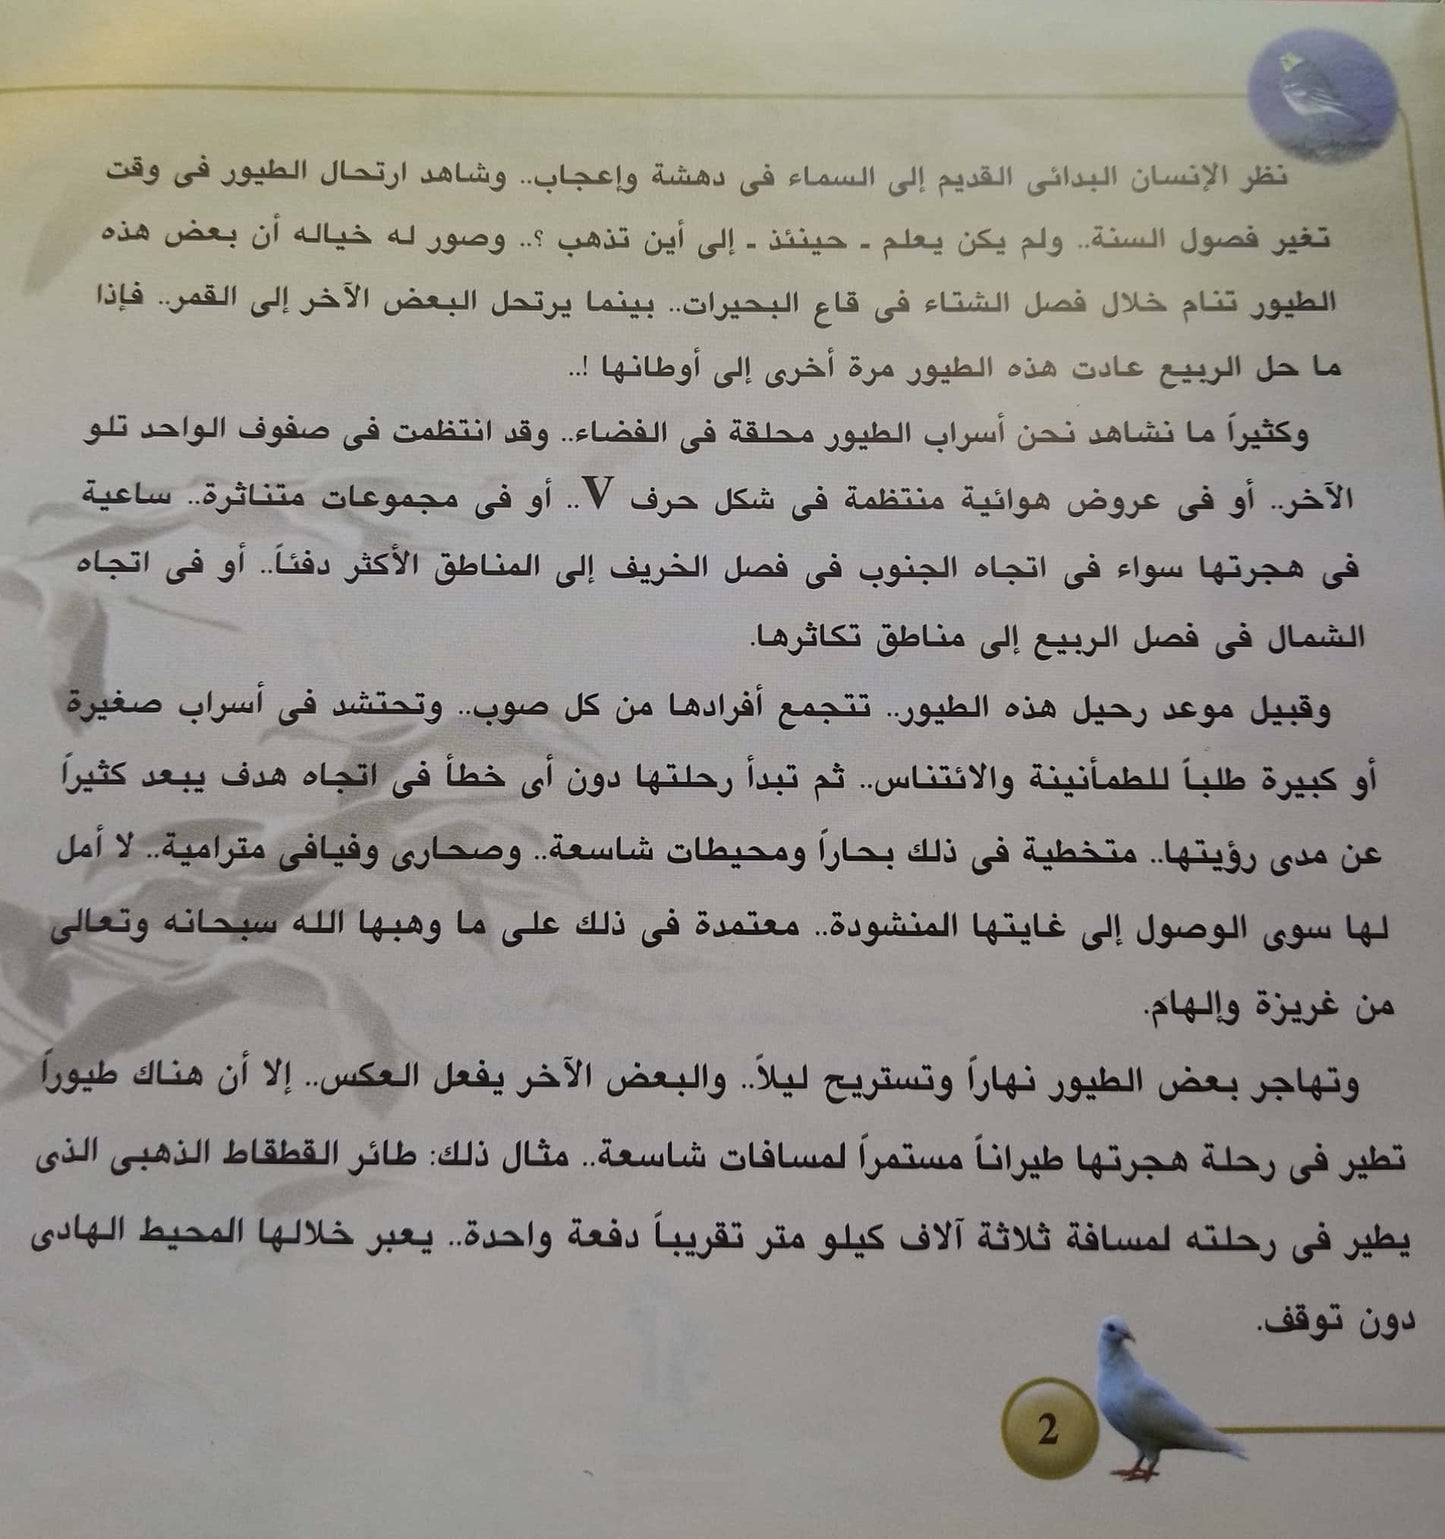 نظر الإنسان البدائى القديم إلى السماء فى دهشة وإعجاب.. وشاهد ارتحال الطيور فى وقت
تغير فصول السنة.. ولم يكن يعلم ـ حينئذ ـ إلى أين تذهب ؟.. وصور له خياله أن بعض هذه
الطيور تنام خلال فصل الشتاء فى قاع البحيرات.. بينما يرتحل البعض الآخر إلى القمر.. فإذا
ما حل الربيع عادت هذه الطيور مرة أخرى إلى أوطانها !..
وكثيراً ما نشاهد نحن أسراب الطيور محلقة فى الفضاء.. وقد انتظمت فى صفوف الواحد تلو
الآخر.. أو فى عروض هوائية منتظمة فى شكل حرف V.. أو فى مجموعات متناثرة.. ساعية
فى هجرتها سواء فى اتجاه الجنوب فى فصل الخريف إلى المناطق الأكثر دفئاً.. أو فى اتجاه
الشمال فى فصل الربيع إلى مناطق تكاثرها.
وقبيل موعد رحيل هذه الطيور.. تتجمع أفرادها من كل صوب.. وتحتشد فى أسراب صغيرة
أو كبيرة طلباً للطمأنينة والائتناس.. ثم تبدأ رحلتها دون أى خطأ فى اتجاه هدف يبعد كثيراً
عن مدى رؤيتها.. متخطية فى ذلك بحاراً ومحيطات شاسعة.. وصحارى وفيافى مترامية.. لا أمل
لها سوى الوصول إلى غايتها المنشودة.. معتمدة فى ذلك على ما وهبها الله سبحانه وتعالى
من غريزة وإلهام.
وتهاجر بعض الطيور نهاراً وتستريح ليلاً.. والبعض الآخر يفعل العكس.. إلا أن هناك طيوراً
تطير فى رحلة هجرتها طيراناً مستمراً لمسافات شاسعة.. مثال ذلك: طائر القطقاط الذهبى الذى
يطير فى رحلته لمسافة ثلاثة آلاف كيلو متر تقريباً دفعة واحدة.. يعبر خلالها المحيط الهادى
دون توقف.
2